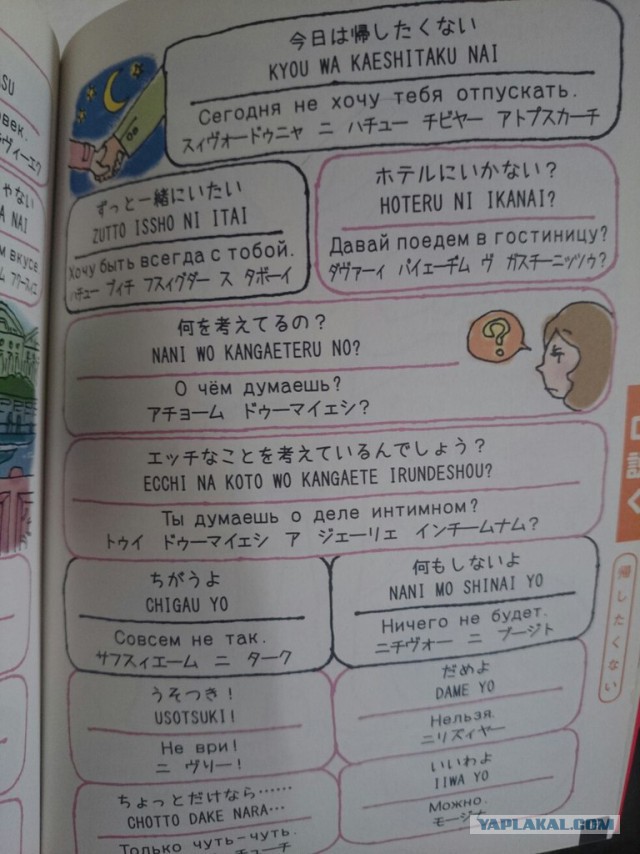 今日は帰したくない
KYOU WA KAESHITAKU NAI
Сегодня не хочу тебя отпускать.
スィヴォードゥニャ ニ ハチュー チビャー アトプスカーチ
ずっと一緒にいたい
ZUTTO ISSHO NI ITAI
Хочу быть всегда с тобой.
ハチュー ブィチ フスィグダー ス タボーイ
ホテルにいかない？
HOTERU NI IKANAI?
Давай поедем в гостиницу?
ダヴァーィ パイェーヂム ヴ ガスチーニッツゥ？
何を考えてるの？
NANI WO KANGAETERU NO?
О чём думаешь?
アチョーム ドゥーマイェシ？
?
エッチなことを考えているんでしょう？
ECCHI NA KOTO WO KANGAETE IRUNDESHOU?
Ты думаешь о деле интимном?
トゥイ ドゥーマイェシ ア ジェーリェ インチームナム？
ちがうよ
CHIGAU YO
Совсем не так.
サフスィエーム ニ ターク
何もしないよ
NANI MO SHINAI YO
Ничего не будет.
ニチヴォー ニ ブージト
うそつき！
USOTSUKI!
Не ври!
ニ ヴリー！
だめよ
DAME YO
Нельзя.
ニリズィヤー
ちょっとだけなら……
CHOTTO DAKE NARA…
Только чуть-чуть.
チューチ
いいわよ
IIWA YO
Можно.
口説く
帰したくない
SU
овек.
ゃない
A NAI
м вкусе
YAPLAKAL.COM